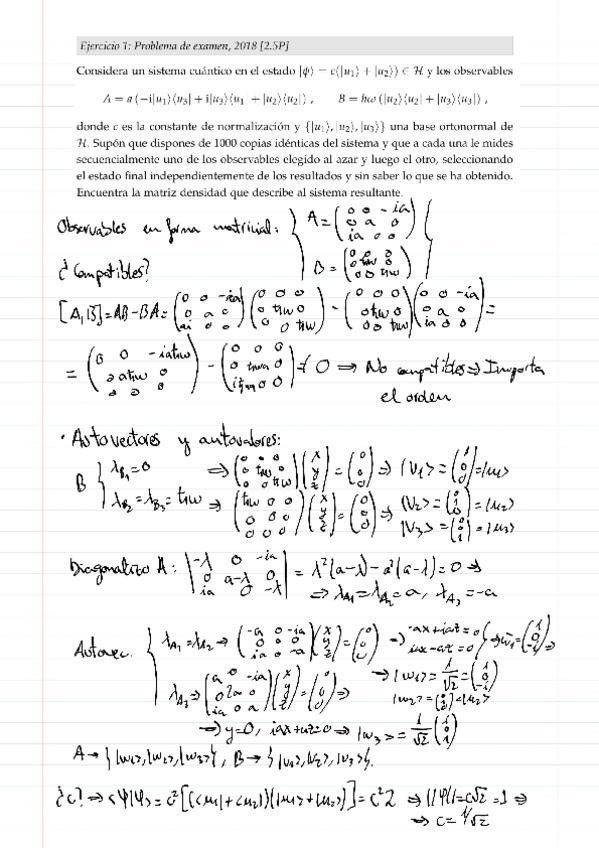 Ejercicio 1: Problema de examen, 2018 [2.5P]
Considera un sistema cuántico en el estado |ψ⟩ = c(|u₁⟩ + |u₂⟩) ∈ ℋ y los observables
A = a (−i|u₁⟩⟨u₃| + i|u₃⟩⟨u₁| + |u₂⟩⟨u₂|) , B = ħω (|u₂⟩⟨u₂| + |u₃⟩⟨u₃|) ,
donde c es la constante de normalización y {|u₁⟩, |u₂⟩, |u₃⟩} una base ortonormal de
ℋ. Supón que dispones de 1000 copias idénticas del sistema y que a cada una le mides
secuencialmente uno de los observables elegido al azar y luego el otro, seleccionando
el estado final independientemente de los resultados y sin saber lo que se ha obtenido.
Encuentra la matriz densidad que describe al sistema resultante.
Observables en forma matricial: { A = (0 0 -ia; 0 a 0; ia 0 0)
B = (0 0 0; 0 ħω 0; 0 0 ħω)
¿Compatibles?
[A,B] = AB - BA = (0 0 -ia; 0 a 0; ai 0 0)(0 0 0; 0 ħω 0; 0 0 ħω) - (0 0 0; 0 ħω 0; 0 0 ħω)(0 0 -ia; 0 a 0; ia 0 0) =
= (0 0 -iaħω; 0 aħω 0; 0 0 0) - (0 0 0; 0 ħωa 0; iħωa 0 0) ≠ 0 ⇒ No compatibles ⇒ Importa
el orden
· Autovectores y autovalores:
B { λB₁ = 0 ⇒ (0 0 0; 0 ħω 0; 0 0 ħω)(x; y; z) = (0; 0; 0) ⇒ |v₁⟩ = (1; 0; 0) = |u₁⟩
λB₂ = λB₃ = ħω ⇒ (ħω 0 0; 0 0 0; 0 0 0)(x; y; z) = (0; 0; 0) ⇒ |v₂⟩ = (0; 1; 0) = |u₂⟩
|v₃⟩ = (0; 0; 1) = |u₃⟩
Diagonalizo A: |-λ 0 -ia; 0 a-λ 0; ia 0 -λ| = λ²(a-λ) - a²(a-λ) = 0 ⇒
⇒ λA₁ = λA₂ = a, λA₃ = -a
Autovec. { λA₁ = λA₂ → (-a 0 -ia; 0 0 0; ia 0 -a)(x; y; z) = (0; 0; 0) → -ax+iaz = 0
iax-az = 0 } ⇒
→ |w₁⟩ = 1/√2 (1; 0; -i)
|w₂⟩ = (0; 1; 0) = |u₂⟩
λA₃ → (a 0 -ia; 0 2a 0; ia 0 a)(x; y; z) = (0; 0; 0) ⇒
→ y=0, iax+az=0 → |w₃⟩ = 1/√2 (1; 0; i)
A → {|w₁⟩, |w₂⟩, |w₃⟩}, B → {|v₁⟩, |v₂⟩, |v₃⟩}.
¿c? → ⟨ψ|ψ⟩ = c²[(⟨u₁|+⟨u₂|)(|u₁⟩+|u₂⟩)] = c²2 ⇒ ||ψ|| = c√2 = 1 ⇒
⇒ c = 1/√2